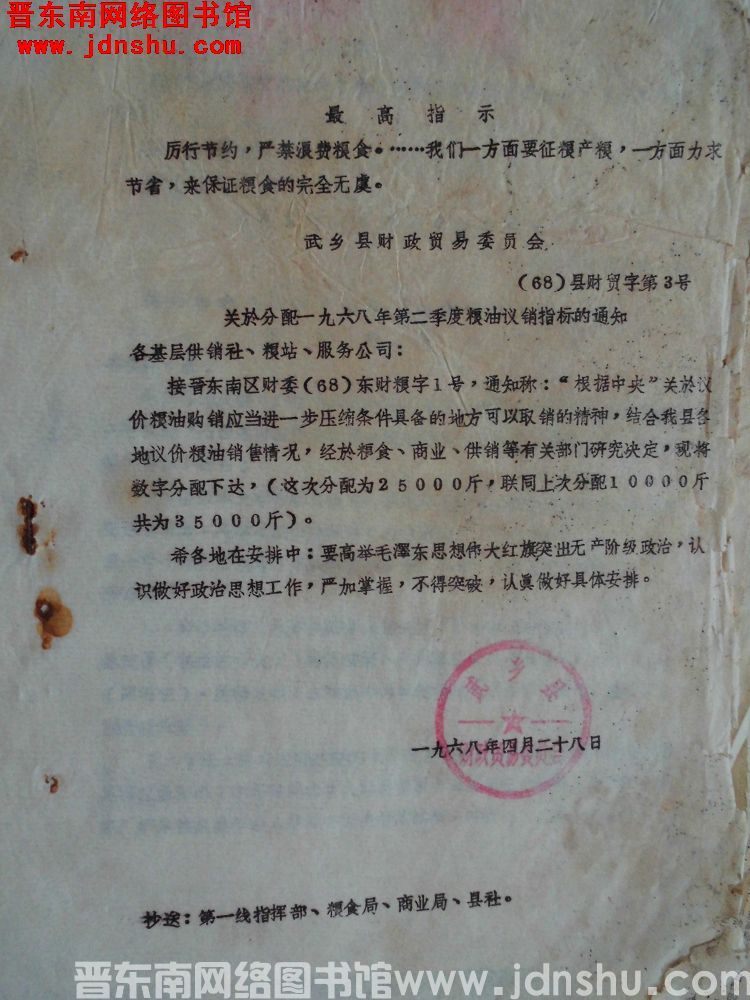 晋东南网络图书馆
www.jdnshu.com
最高指示
厉行节约，严禁浪费粮食。……我们一方面要征粮产粮，一方面力求
节省，来保证粮食的完全无虞。
武乡县财政贸易委员会
(68)县财贸字第3号
关於分配一九六八年第二季度粮油议销指标的通知
各基层供销社、粮站、服务公司：
接晋东南区财委(68)东财粮字1号，通知称：“根据中央”关於议
价粮油购销应当进一步压缩条件具备的地方可以取销的精神，结合我县各
地议价粮油销售情况，经於粮食、商业、供销等有关部门研究决定，现将
数字分配下达，（这次分配为25000斤，联同上次分配10000斤
共为35000斤）。
希各地在安排中：要高举毛澤东思想伟大红旗突出无产阶级政治，认
识做好政治思想工作，严加掌握，不得突破，认真做好具体安排。
武乡县
财政贸易委员会
一九六八年四月二十八日
抄送：第一线指挥部、粮食局、商业局、县社。
晋东南网络图书馆www.jdnshu.com